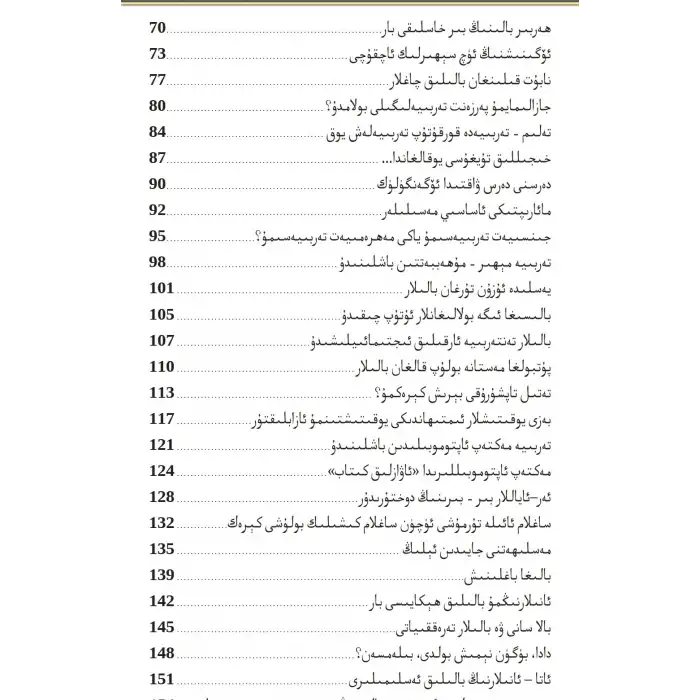 ھەربىر بالىنىڭ بىر خاسلىقى بار 70
ئۆگىنىشنىڭ ئۈچ سېھىرلىك ئاچقۇچى 73
نابۇت قىلىنغان بالىلىق چاغلار 77
جازالىمايمۇ پەرزەنت تەربىيەلىگىلى بولامدۇ؟ 80
تەلىم - تەربىيەدە قورقۇتۇپ تەربىيەلەش يوق 84
خىجىللىق تۇيغۇسى يوقالغاندا... 87
دەرسنى دەرس ۋاقتىدا ئۆگەنگۈلۈك 90
مائارىپتىكى ئاساسىي مەسىلىلەر 92
جىنسىيەت تەربىيەسىمۇ ياكى مەھرەمىيەت تەربىيەسىمۇ؟ 95
تەربىيە مېھىر - مۇھەببەتتىن باشلىنىدۇ 98
يەسلىدە ئۇزۇن تۇرغان بالىلار 101
بالىسىغا ئىگە بولالىغانلار ئۇتۇپ چىقىدۇ 105
بالىلار تەنتەربىيە ئارقىلىق ئىجتىمائىيلىشىدۇ 107
پۇتبولغا مەستانە بولۇپ قالغان بالىلار 110
تەتىل تاپشۇرۇقى بېرىش كېرەكمۇ؟ 113
بەزى يوقىتىشلار ئىمتىھاندىكى يوقىتىشتىنمۇ ئازابلىقتۇر 117
تەربىيە مەكتەپ ئاپتوموبىلىدىن باشلىنىدۇ 121
مەكتەپ ئاپتوموبىللىرىدا «ئاۋازلىق كىتاب» 124
ئەر–ئاياللار بىر - بىرىنىڭ دوختۇرىدۇر 128
ساغلام ئائىلە تۇرمۇشى ئۈچۈن ساغلام كىشىلىك بولۇشى كېرەك 132
مەسلىھەتنى جايىدىن ئېلىڭ 135
بالىغا باغلىنىش 139
ئانىلارنىڭمۇ بالىلىق ھېكايىسى بار 142
بالا سانى ۋە بالىلار تەرەققىياتى 145
دادا، بۈگۈن نېمىش بولدى، بىلەمسەن؟ 148
ئاتا – ئانىلارنىڭ بالىلىق ئەسلىمىلىرى 151